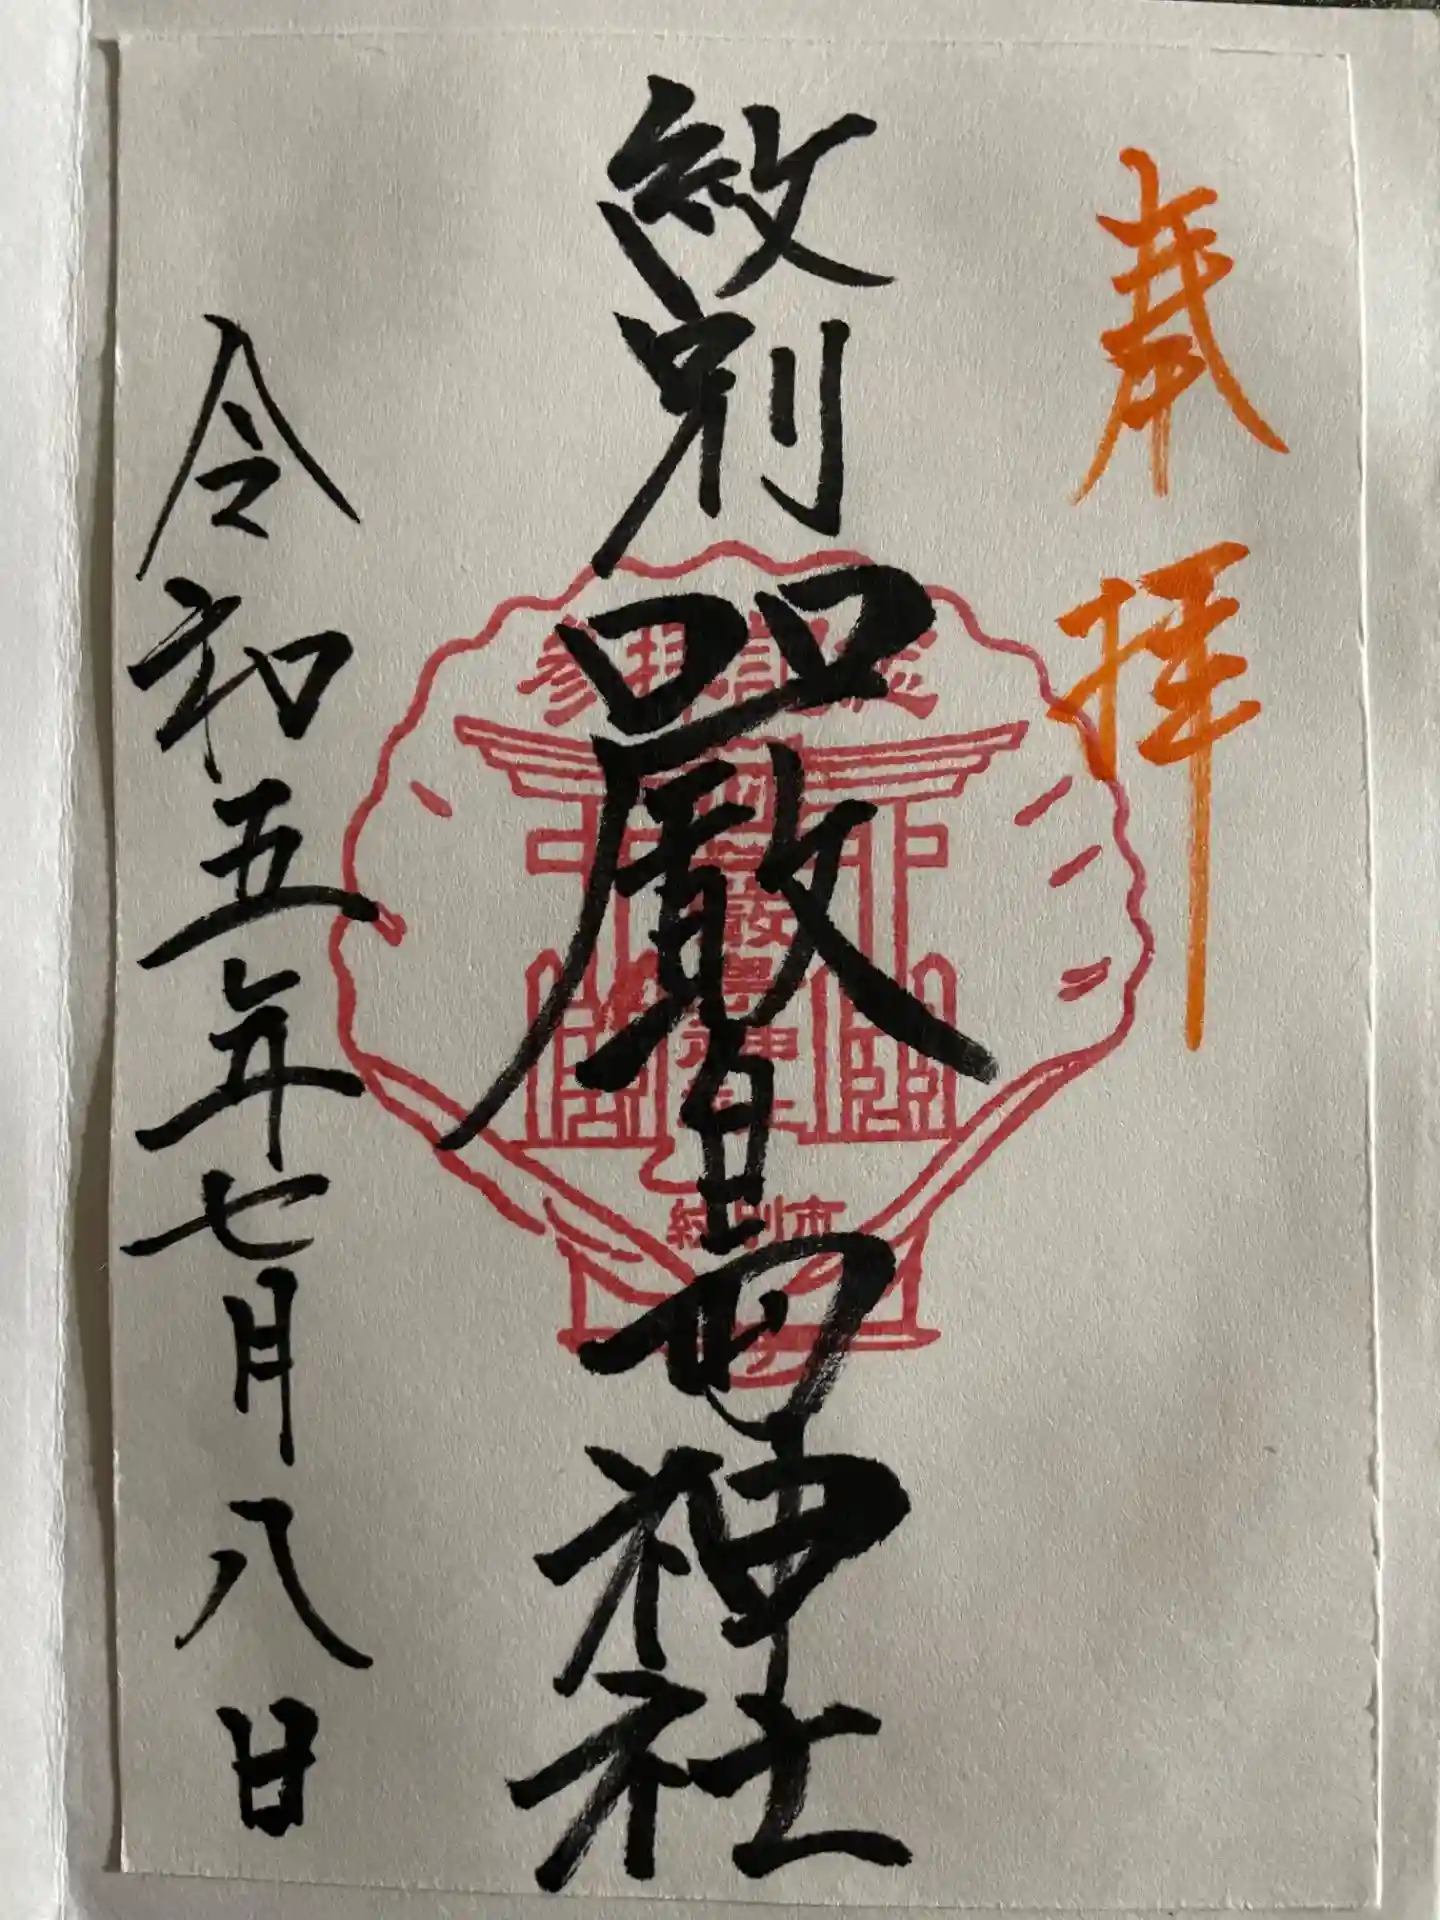 奉拝
紋別厳島神社
令和五年七月八日
参拝記念
厳島神社
紋別市